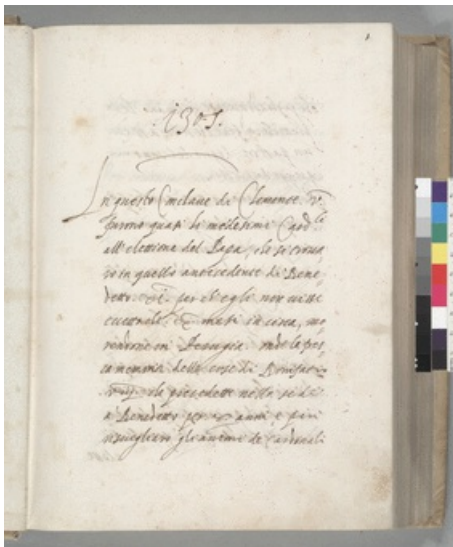 1
.1305.
In questo Conclave di Clemente V.
furono quasi li medesimi Card.li
all'elettione del Papa, che si trova
ro in quello antecedente di Bene
detto XI. per ch'egli non visse
che mesi in circa, mo
rendone in Perugia. onde la fres
ca memoria delle cose di Bonifacio
VIII. che precedette nella sedi
a Benedetto per anni, e più
risvegliaro gli animi de Cardinali